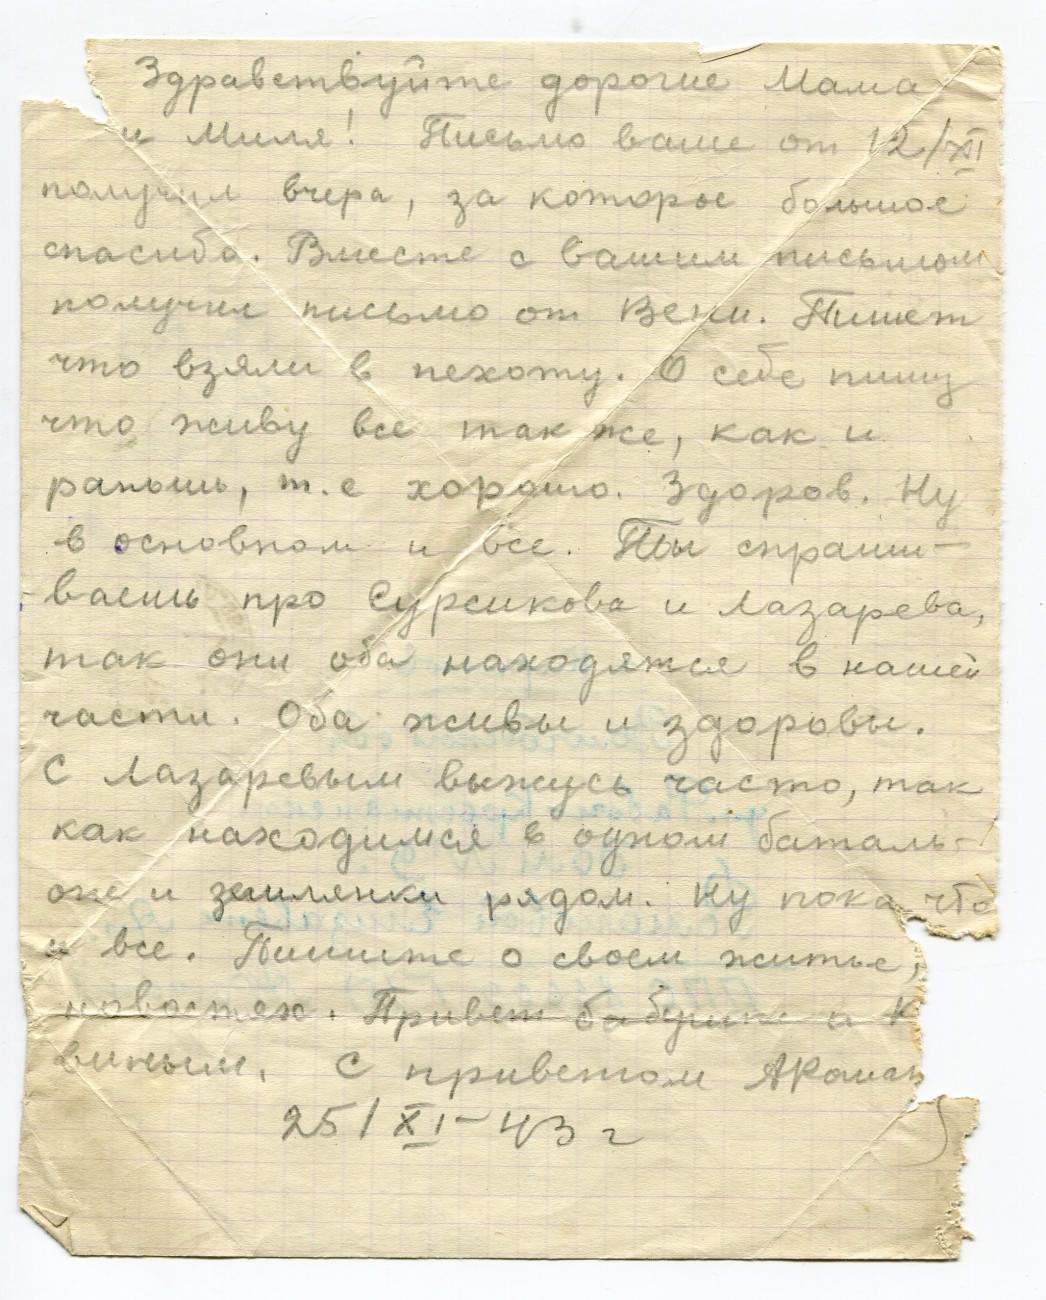 Здравствуйте дорогие Мама
и Миля! Письмо ваше от 12/XI
получил вчера, за которое большое
спасибо. Вместе с вашим письмом
получил письмо от Вени. Пишет
что взяли в пехоту. О себе пишу
что живу все так же, как и
раньшь, т.е хорошо. Здоров. Ну
в основном и все. Ты спраши-
ваешь про Сурсикова и Лазарева,
так они оба находятся в нашей
части. Оба живы и здоровы.
С Лазаревым вижусь часто, так
как находимся в одном баталь-
оне и землянки рядом. Ну пока что
и все. Пишите о своем житье,
новостях. Привет бабушке и К
виным. С приветом
25/XI-43 г